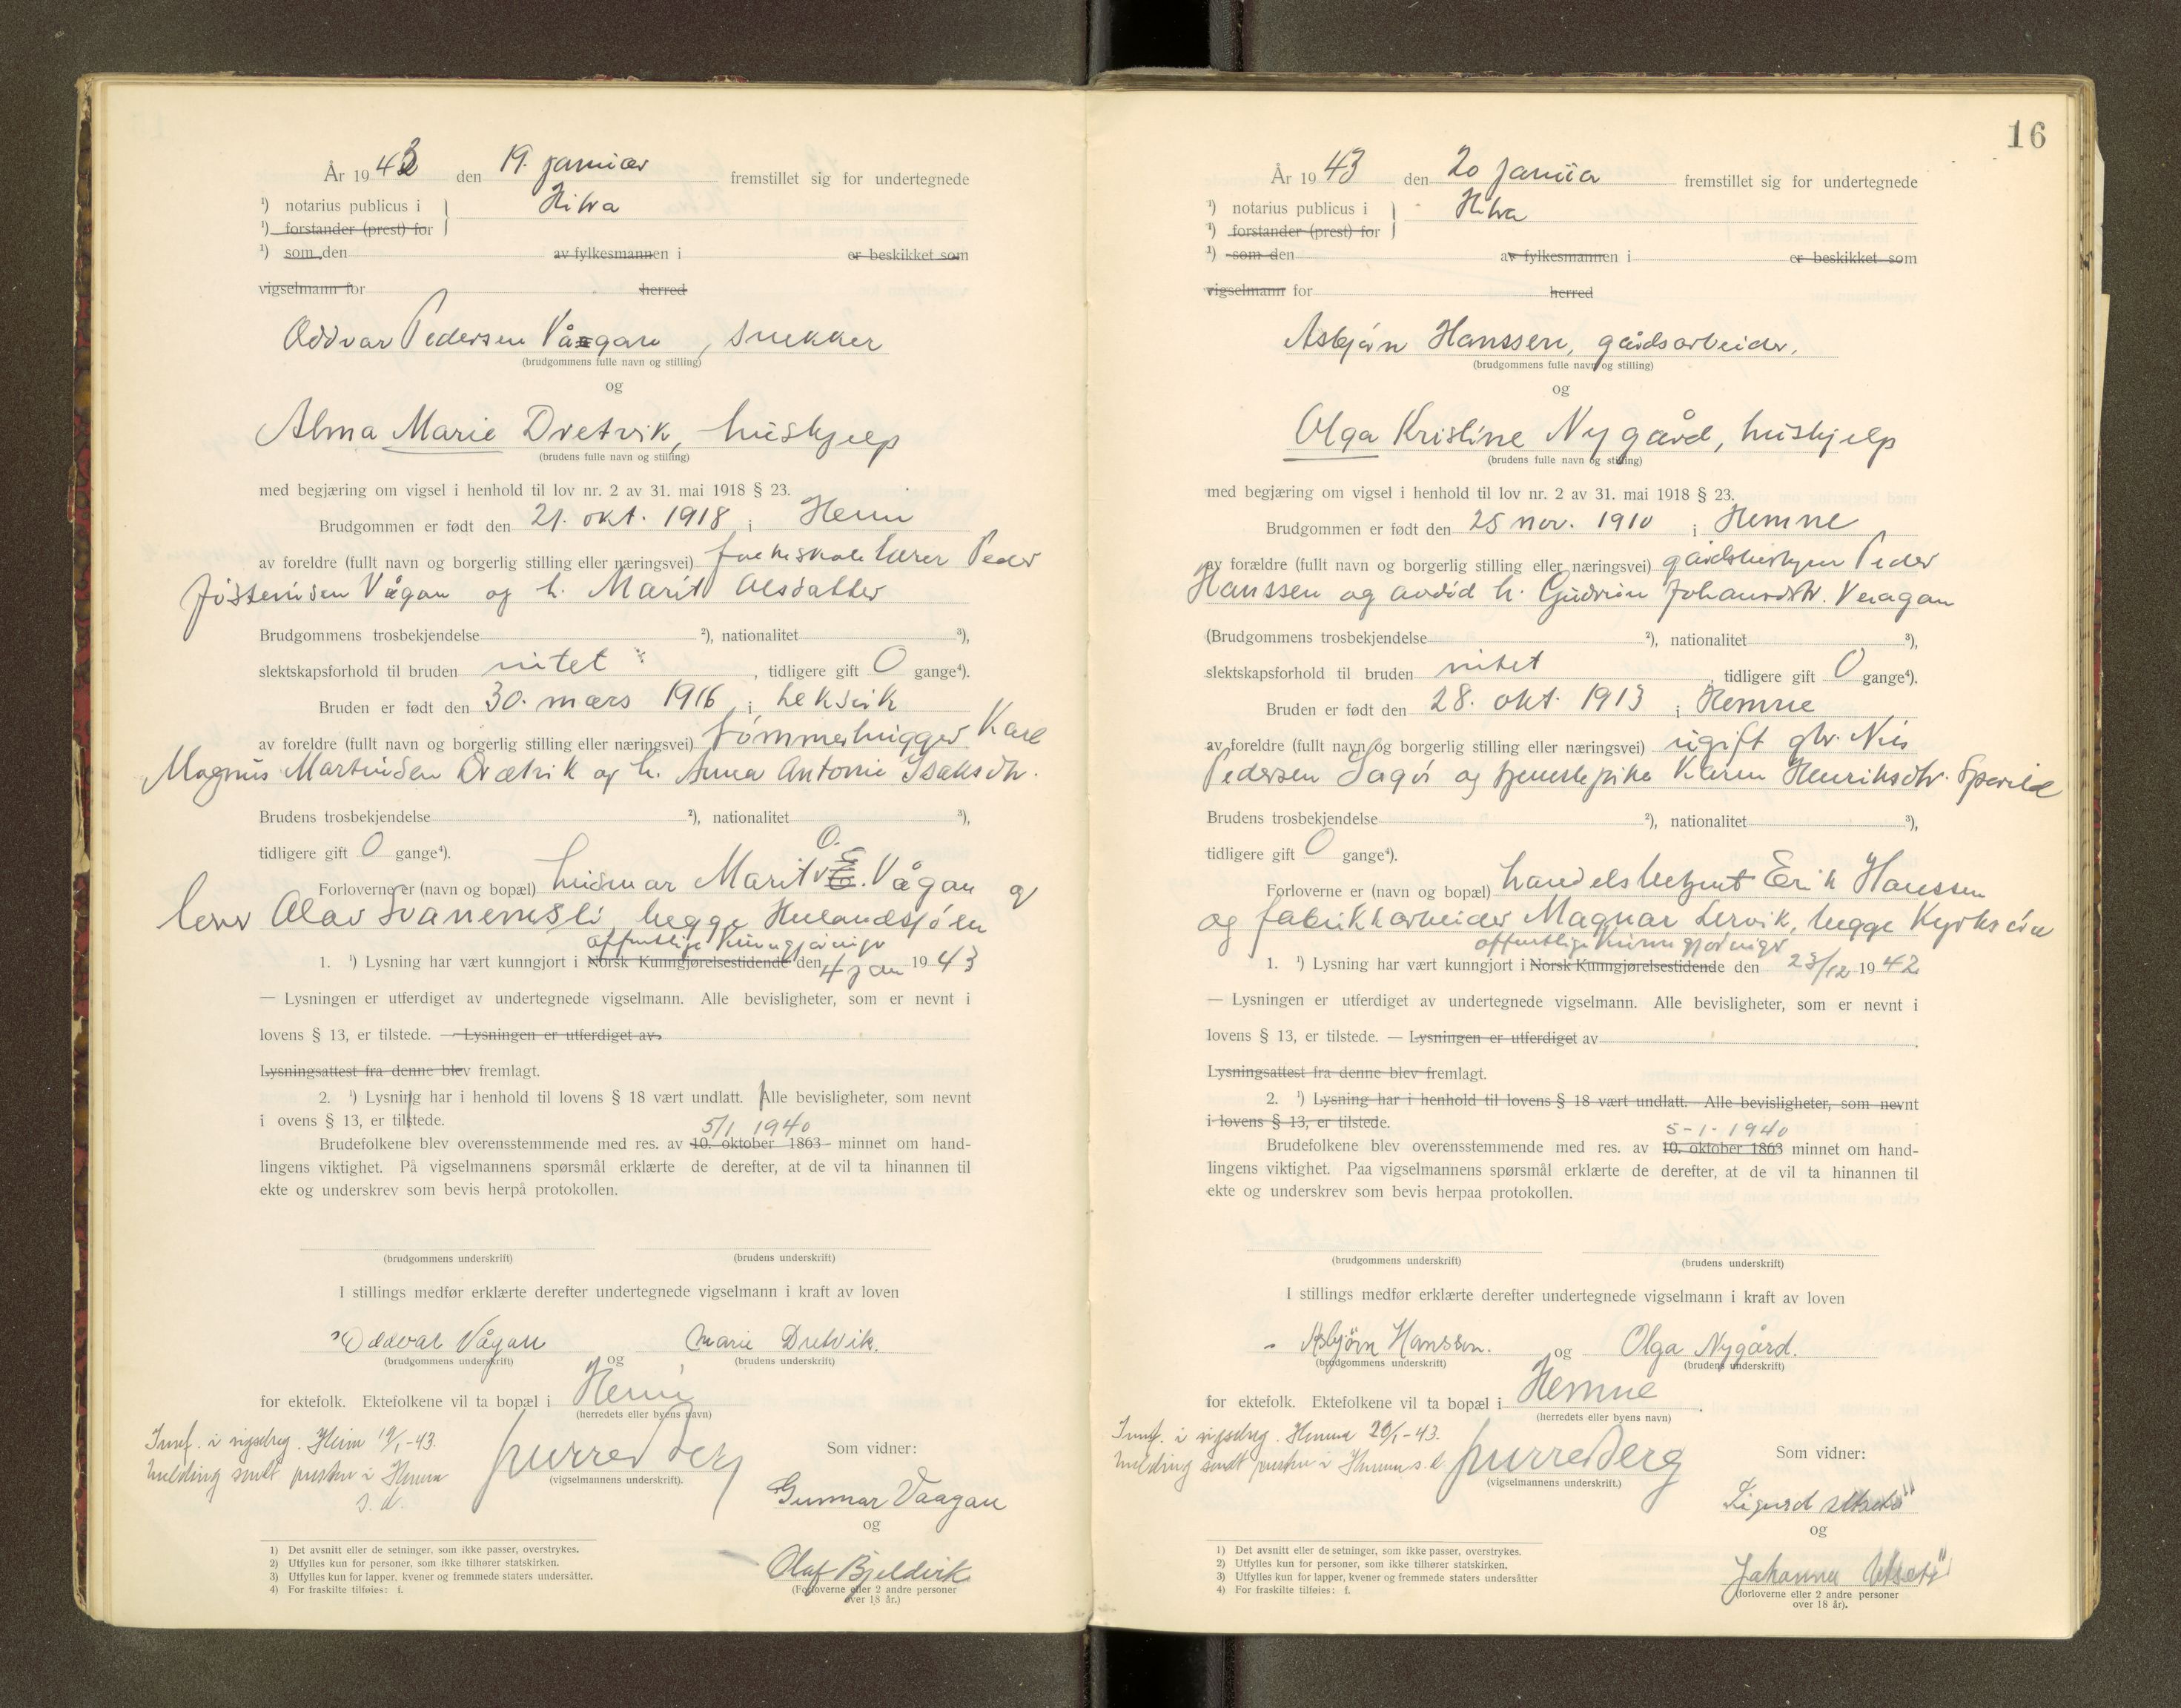 År 1943 den 19. januar fremstillet sig for undertegnede
¹) notarius publicus i Hitra
¹) forstander (prest) for
¹) som den av fylkesmannen i er beskikket som
vigselmann for herred
Oddvar Pedersen Vågan, snekker
(brudgommens fulle navn og stilling)
og
Alma Marie Dretvik, hushjelp
(brudens fulle navn og stilling)
med begjæring om vigsel i henhold til lov nr. 2 av 31. mai 1918 § 23.
Brudgommen er født den 21. okt. 1918 i Heim
av foreldre (fullt navn og borgerlig stilling eller næringsvei) folkeskolelærer Peder
Jostensen Vågan og h. Marit Olsdatter
Brudgommens trosbekjendelse ²), nationalitet ³),
slektskapsforhold til bruden intet, tidligere gift 0 gange⁴).
Bruden er født den 30. mars 1916 i Leksvik
av foreldre (fullt navn og borgerlig stilling eller næringsvei) tømmerhugger Karl
Magnus Martinsen Drætvik og h. Anna Antonie Isaksdtr.
Brudens trosbekjendelse ²), nationalitet ³),
tidligere gift 0 gange⁴).
O.
Forloverne er (navn og bopæl) husmor Marit Vågan og
lærer Olav Svanemsli, begge Heimlandsjøen
offentlige kunngjøringer
1. ¹) Lysning har vært kunngjort i Norsk Kunngjørelsestidende den 4 jan 1943
— Lysningen er utferdiget av undertegnede vigselmann. Alle bevisligheter, som er nevnt i
lovens § 13, er tilstede. — Lysningen er utferdiget av
Lysningsattest fra denne blev fremlagt.
2. ¹) Lysning har i henhold til lovens § 18 vært undlatt. Alle bevisligheter, som nevnt
i ovens § 13, er tilstede.
5/1 1940
Brudefolkene blev overensstemmende med res. av 10. oktober 1863 minnet om hand-
lingens viktighet. På vigselmannens spørsmål erklærte de derefter, at de vil ta hinannen til
ekte og underskrev som bevis herpå protokollen.
(brudgommens underskrift) (brudens underskrift)
I stillings medfør erklærte derefter undertegnede vigselmann i kraft av loven
Oddvar Vågan og Marie Dretvik.
(brudgommens underskrift) (brudens underskrift)
for ektefolk. Ektefolkene vil ta bopæl i Heim
(herredets eller byens navn)
Innf. i vigselreg. Heim 19/1-43.
Melding sendt presten i Hemne
s. d.
(vigselmannens underskrift).
Som vidner:
Gunnar Vaagan
og
Olaf Bjeldvik
(Forloverne eller 2 andre personer
over 18 år.)
1) Det avsnitt eller de setninger, som ikke passer, overstrykes.
2) Utfylles kun for personer, som ikke tilhører statskirken.
3) Utfylles kun for lapper, kvener og fremmede staters undersåtter.
4) For fraskilte tilføies: f.
16
År 1943 den 20 januar fremstillet sig for undertegnede
¹) notarius publicus i Hitra
¹) forstander (prest) for
¹) som den av fylkesmannen i er beskikket som
vigselmann for herred
Asbjørn Hanssen, gårdsarbeider.
(brudgommens fulle navn og stilling)
og
Olga Kristine Nygård, hushjelp
(brudens fulle navn og stilling)
med begjæring om vigsel i henhold til lov nr. 2 av 31. mai 1918 § 23.
Brudgommen er født den 25 nov. 1910 i Hemne
av forældre (fullt navn og borgerlig stilling eller næringsvei) gårdsbestyrer Peder
Hanssen og avdød h. Gudrun Johansdtr. Vaagan
(Brudgommens trosbekjendelse ²), nationalitet ³),
slektskapsforhold til bruden intet, tidligere gift 0 gange⁴).
Bruden er født den 28. okt. 1913 i Hemne
av foreldre (fullt navn og borgerlig stilling eller næringsvei) ugift gbr. Nils
Pedersen Sagøi og tjenestepike Karen Henriksdtr.
Brudens trosbekjendelse ²), nationalitet ³),
tidligere gift 0 gange⁴).
Forloverne er (navn og bopæl) handelsbetjent Erik Hanssen
og fabrikkarbeider Magnar Lervik, begge Kyrksæter
offentlige kunngjøringer
1. ¹) Lysning har vært kunngjort i Norsk Kunngjørelsestidende den 23/12 1942
— Lysningen er utferdiget av undertegnede vigselmann. Alle bevisligheter, som er nevnt i
lovens § 13, er tilstede. — Lysningen er utferdiget av
Lysningsattest fra denne blev fremlagt.
2. ¹) Lysning har i henhold til lovens § 18 vært undlatt. Alle bevisligheter, som nevnt
i lovens § 13, er tilstede.
5-1-1940
Brudefolkene blev overensstemmende med res. av 10. oktober 1863 minnet om hand-
lingens viktighet. Paa vigselmannens spørsmål erklærte de derefter, at de vil ta hinannen til
ekte og underskrev som bevis herpaa protokollen.
(brudgommens underskrift) (brudens underskrift)
I stillings medfør erklærte derefter undertegnede vigselmann i kraft av loven
Asbjørn Hanssen. og Olga Nygård.
(brudgommens underskrift) (brudens underskrift)
for ektefolk. Ektefolkene vil ta bopæl i Hemne
(herredets eller byens navn)
Innf. i vigselreg. Hemne 20/1-43.
Melding sendt presten i Hemne s. d.
(vigselmannens underskrift.)
Som vidner:
Sigurd
og
Johanna
(forloverne eller 2 andre personer
over 18 år).
1) Det avsnitt eller de setninger, som ikke passer, overstrykes.
2) Utfylles kun for personer, som ikke tilhører statskirken.
3) Utfylles kun for lapper, kvener og fremmede staters undersåtter
4) For fraskilte tilføies: f.